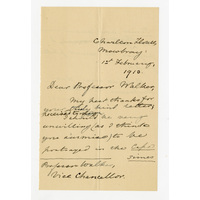 Mowbray.
1st February,
1918.
Dear Professor Walker,
My best thanks for
your kind letter,
should be
unwilling (as I think
you surmise) to be
in the Cape
Times
Professor Walker,
Vice Chancellor.